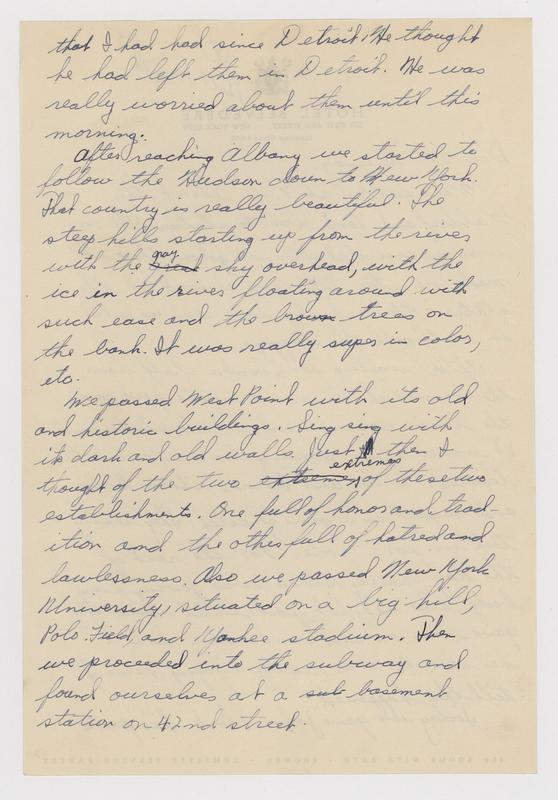 that I had had since Detroit. He thought
he had left them in Detroit. He was
really worried about them until this
morning.
After reaching Albany we started to
follow the Hudson down to New York.
That country is really beautiful. The
steep hills starting up from the river
with the gray sky overhead, with the
ice in the river floating around with
such ease and the brown trees on
the bank. It was really super in color,
etc.
We passed West Point with its old
and historic buildings. Sing sing with
its dark and old walls. Just then I
thought of the two extremes of these two
establishments. One full of honor and trad-
ition and the other full of hatred and
lawlessness. Also we passed New York
University, situated on a big hill,
Polo Field, and Yankee stadium. Then
we proceeded into the subway and
found ourselves at a sub basement
station on 42nd street.